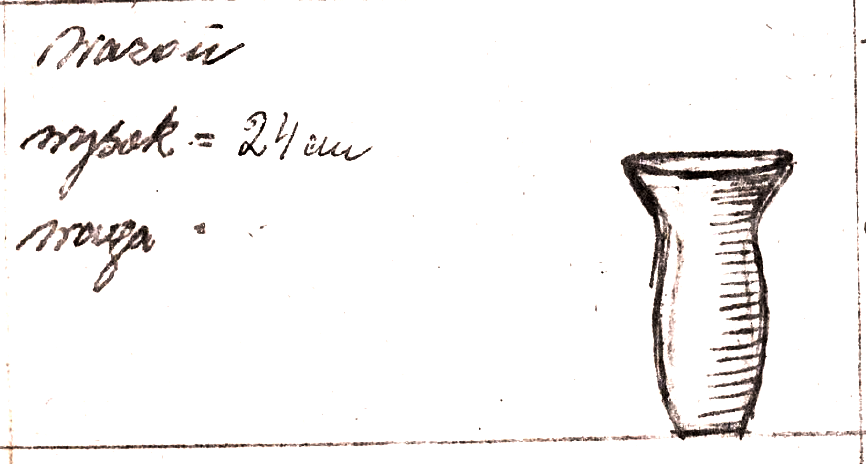 Wazon
wysok = 24 cm
waga